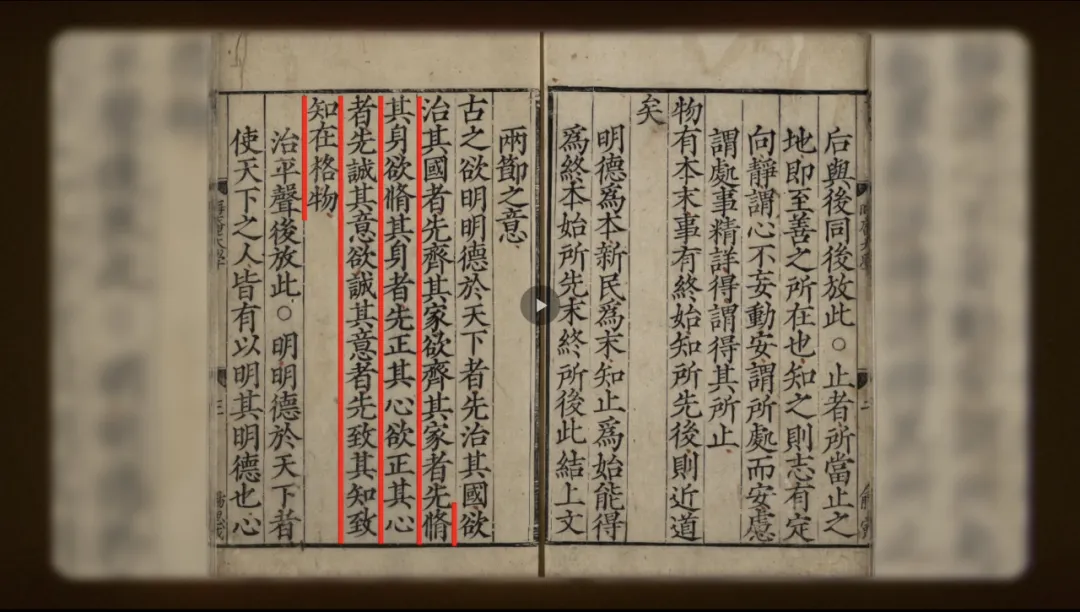 后與後同後放此○止者所當止之
地即至善之所在也知之則志有定
向靜謂心不妄動安謂所處而安慮
謂處事精詳得謂得其所止
物有本末事有終始知所先後則近道
矣
明德爲本新民爲末知止爲始能得
爲終本始所先末終所後此結上文
兩節之意
古之欲明明德於天下者先治其國欲
治其國者先齊其家欲齊其家者先脩
其身欲脩其身者先正其心欲正其心
者先誠其意欲誠其意者先致其知致
知在格物
治平聲後放此○明明德於天下者
使天下之人皆有以明其明德也心